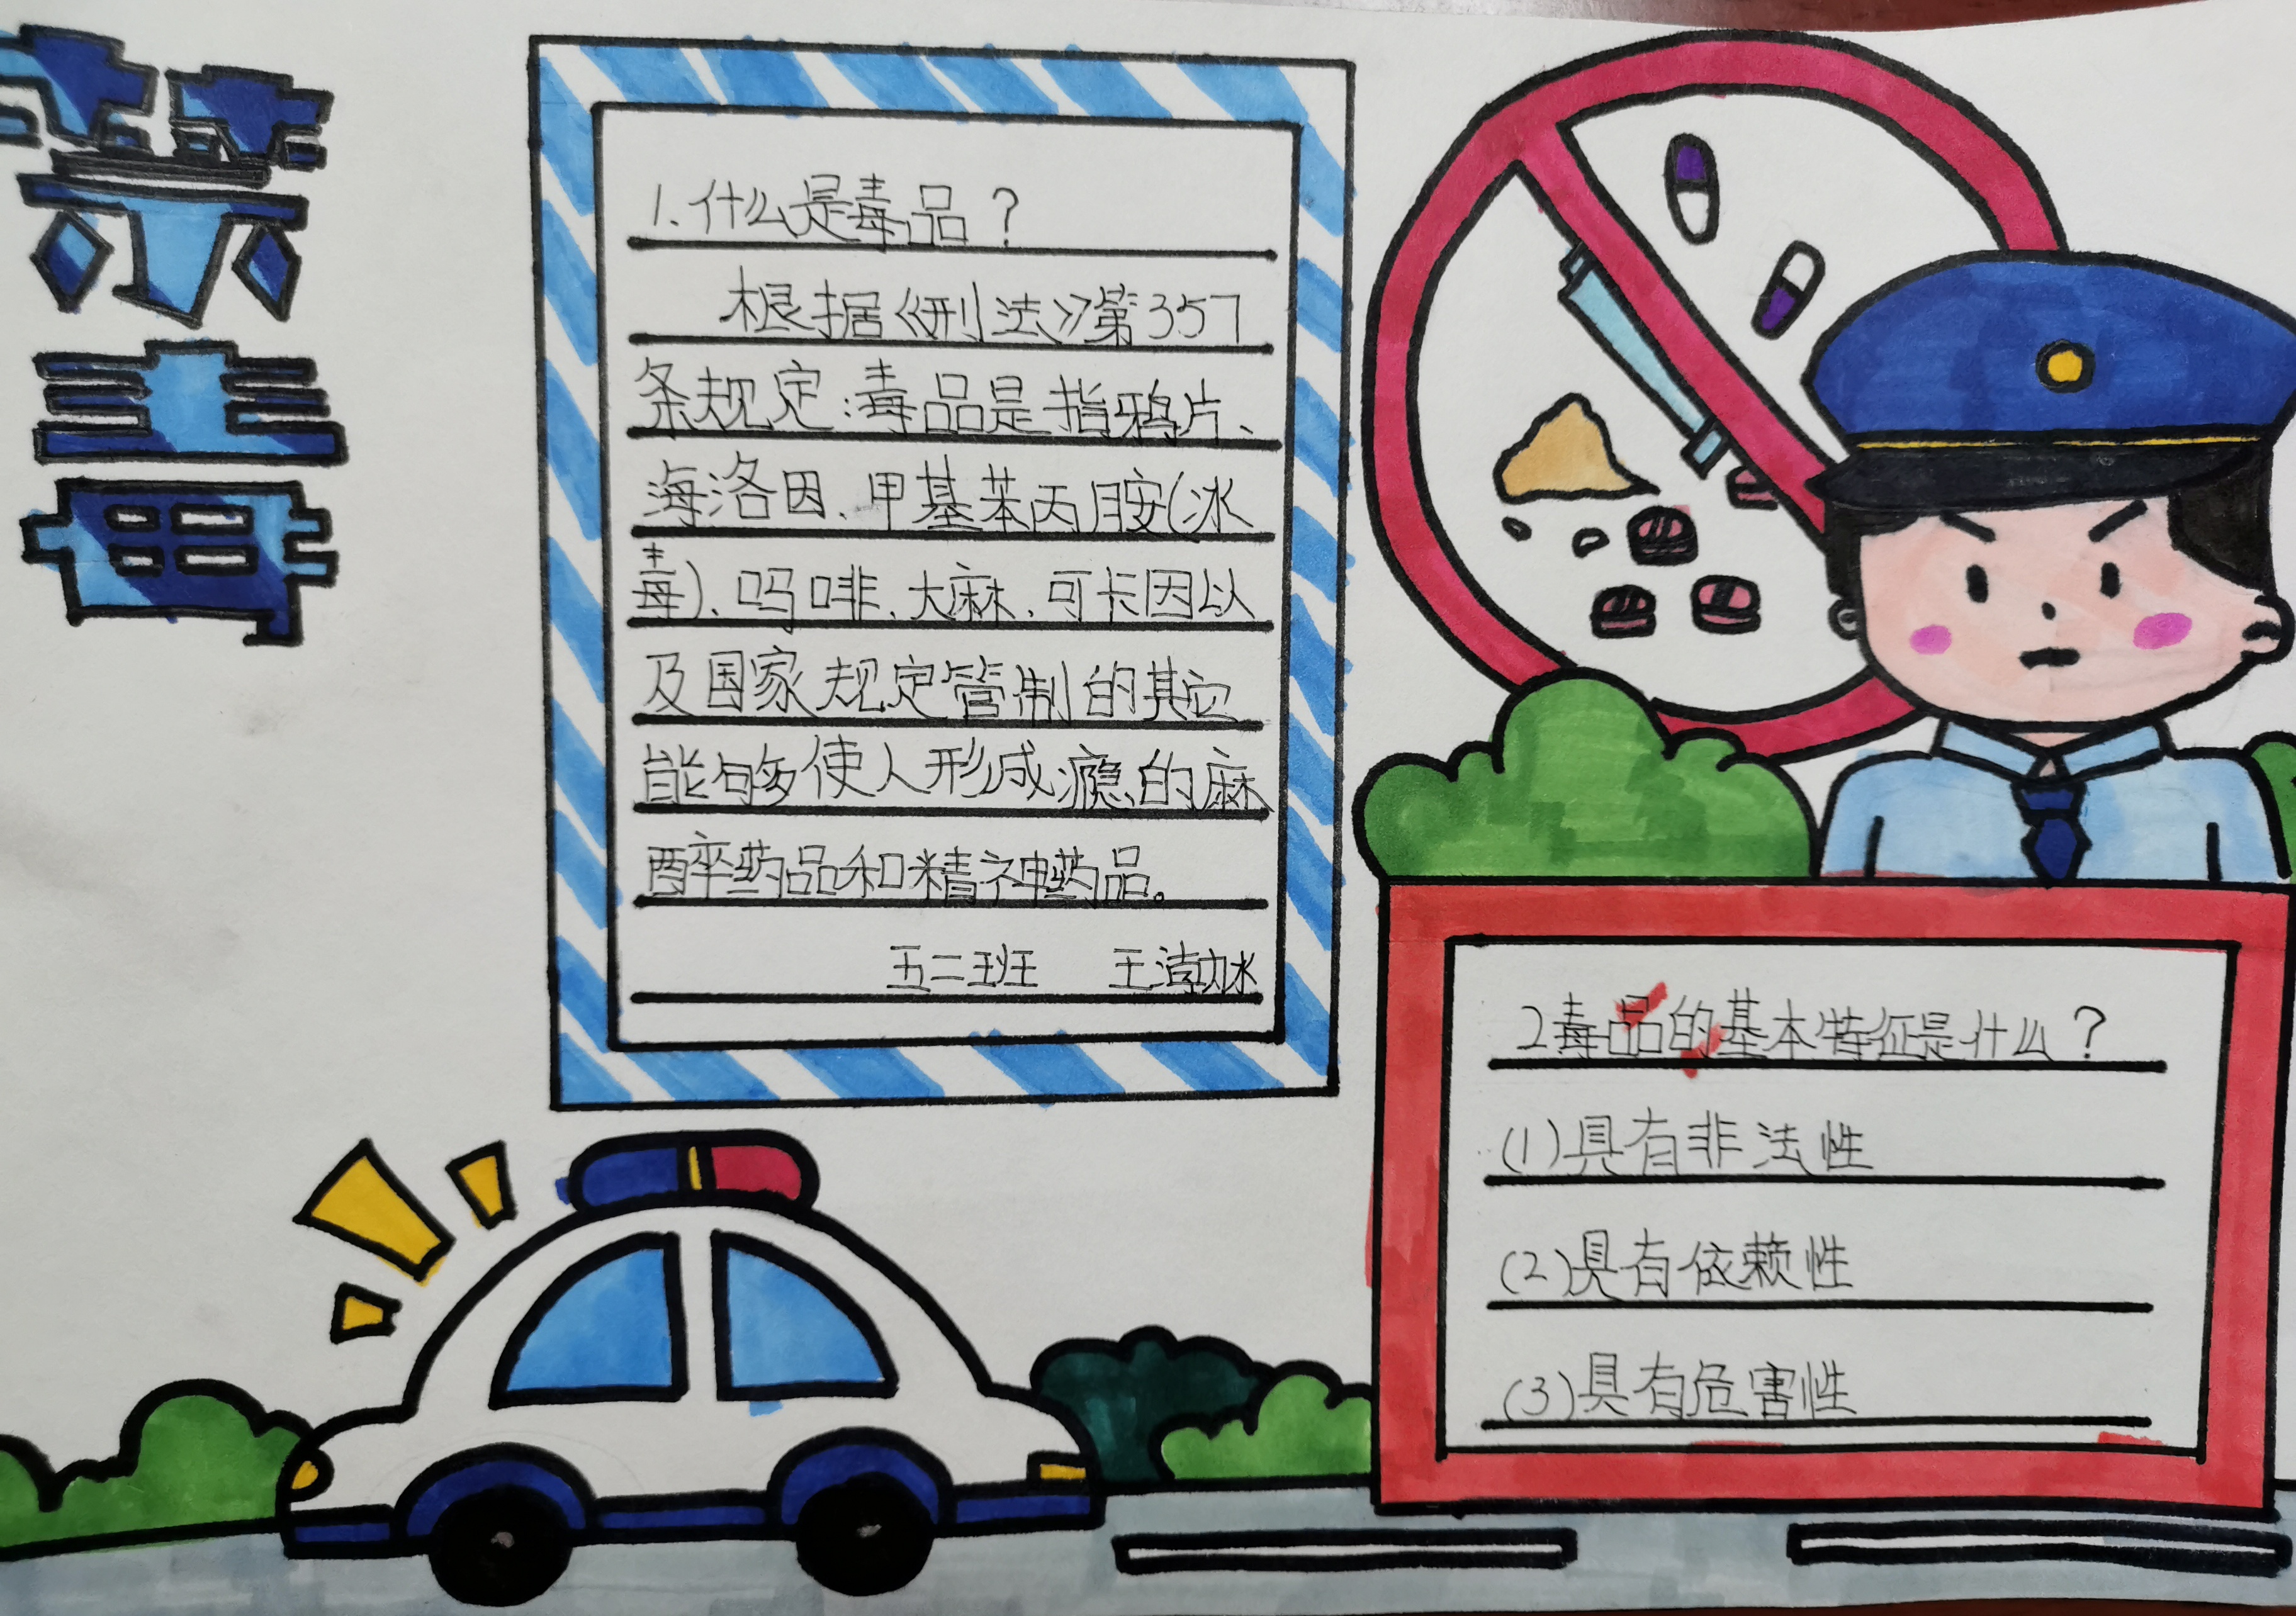 禁毒
1.什么是毒品?
根据《刑法》第357
条规定:毒品是指鸦片、
海洛因、甲基苯丙胺(冰
毒)、吗啡、大麻、可卡因以
及国家规定管制的其它
能够使人形成瘾的麻
醉药品和精神药品。
五二班 王
2毒品的基本特征是什么?
(1)具有非法性
(2)具有依赖性
(3)具有危害性